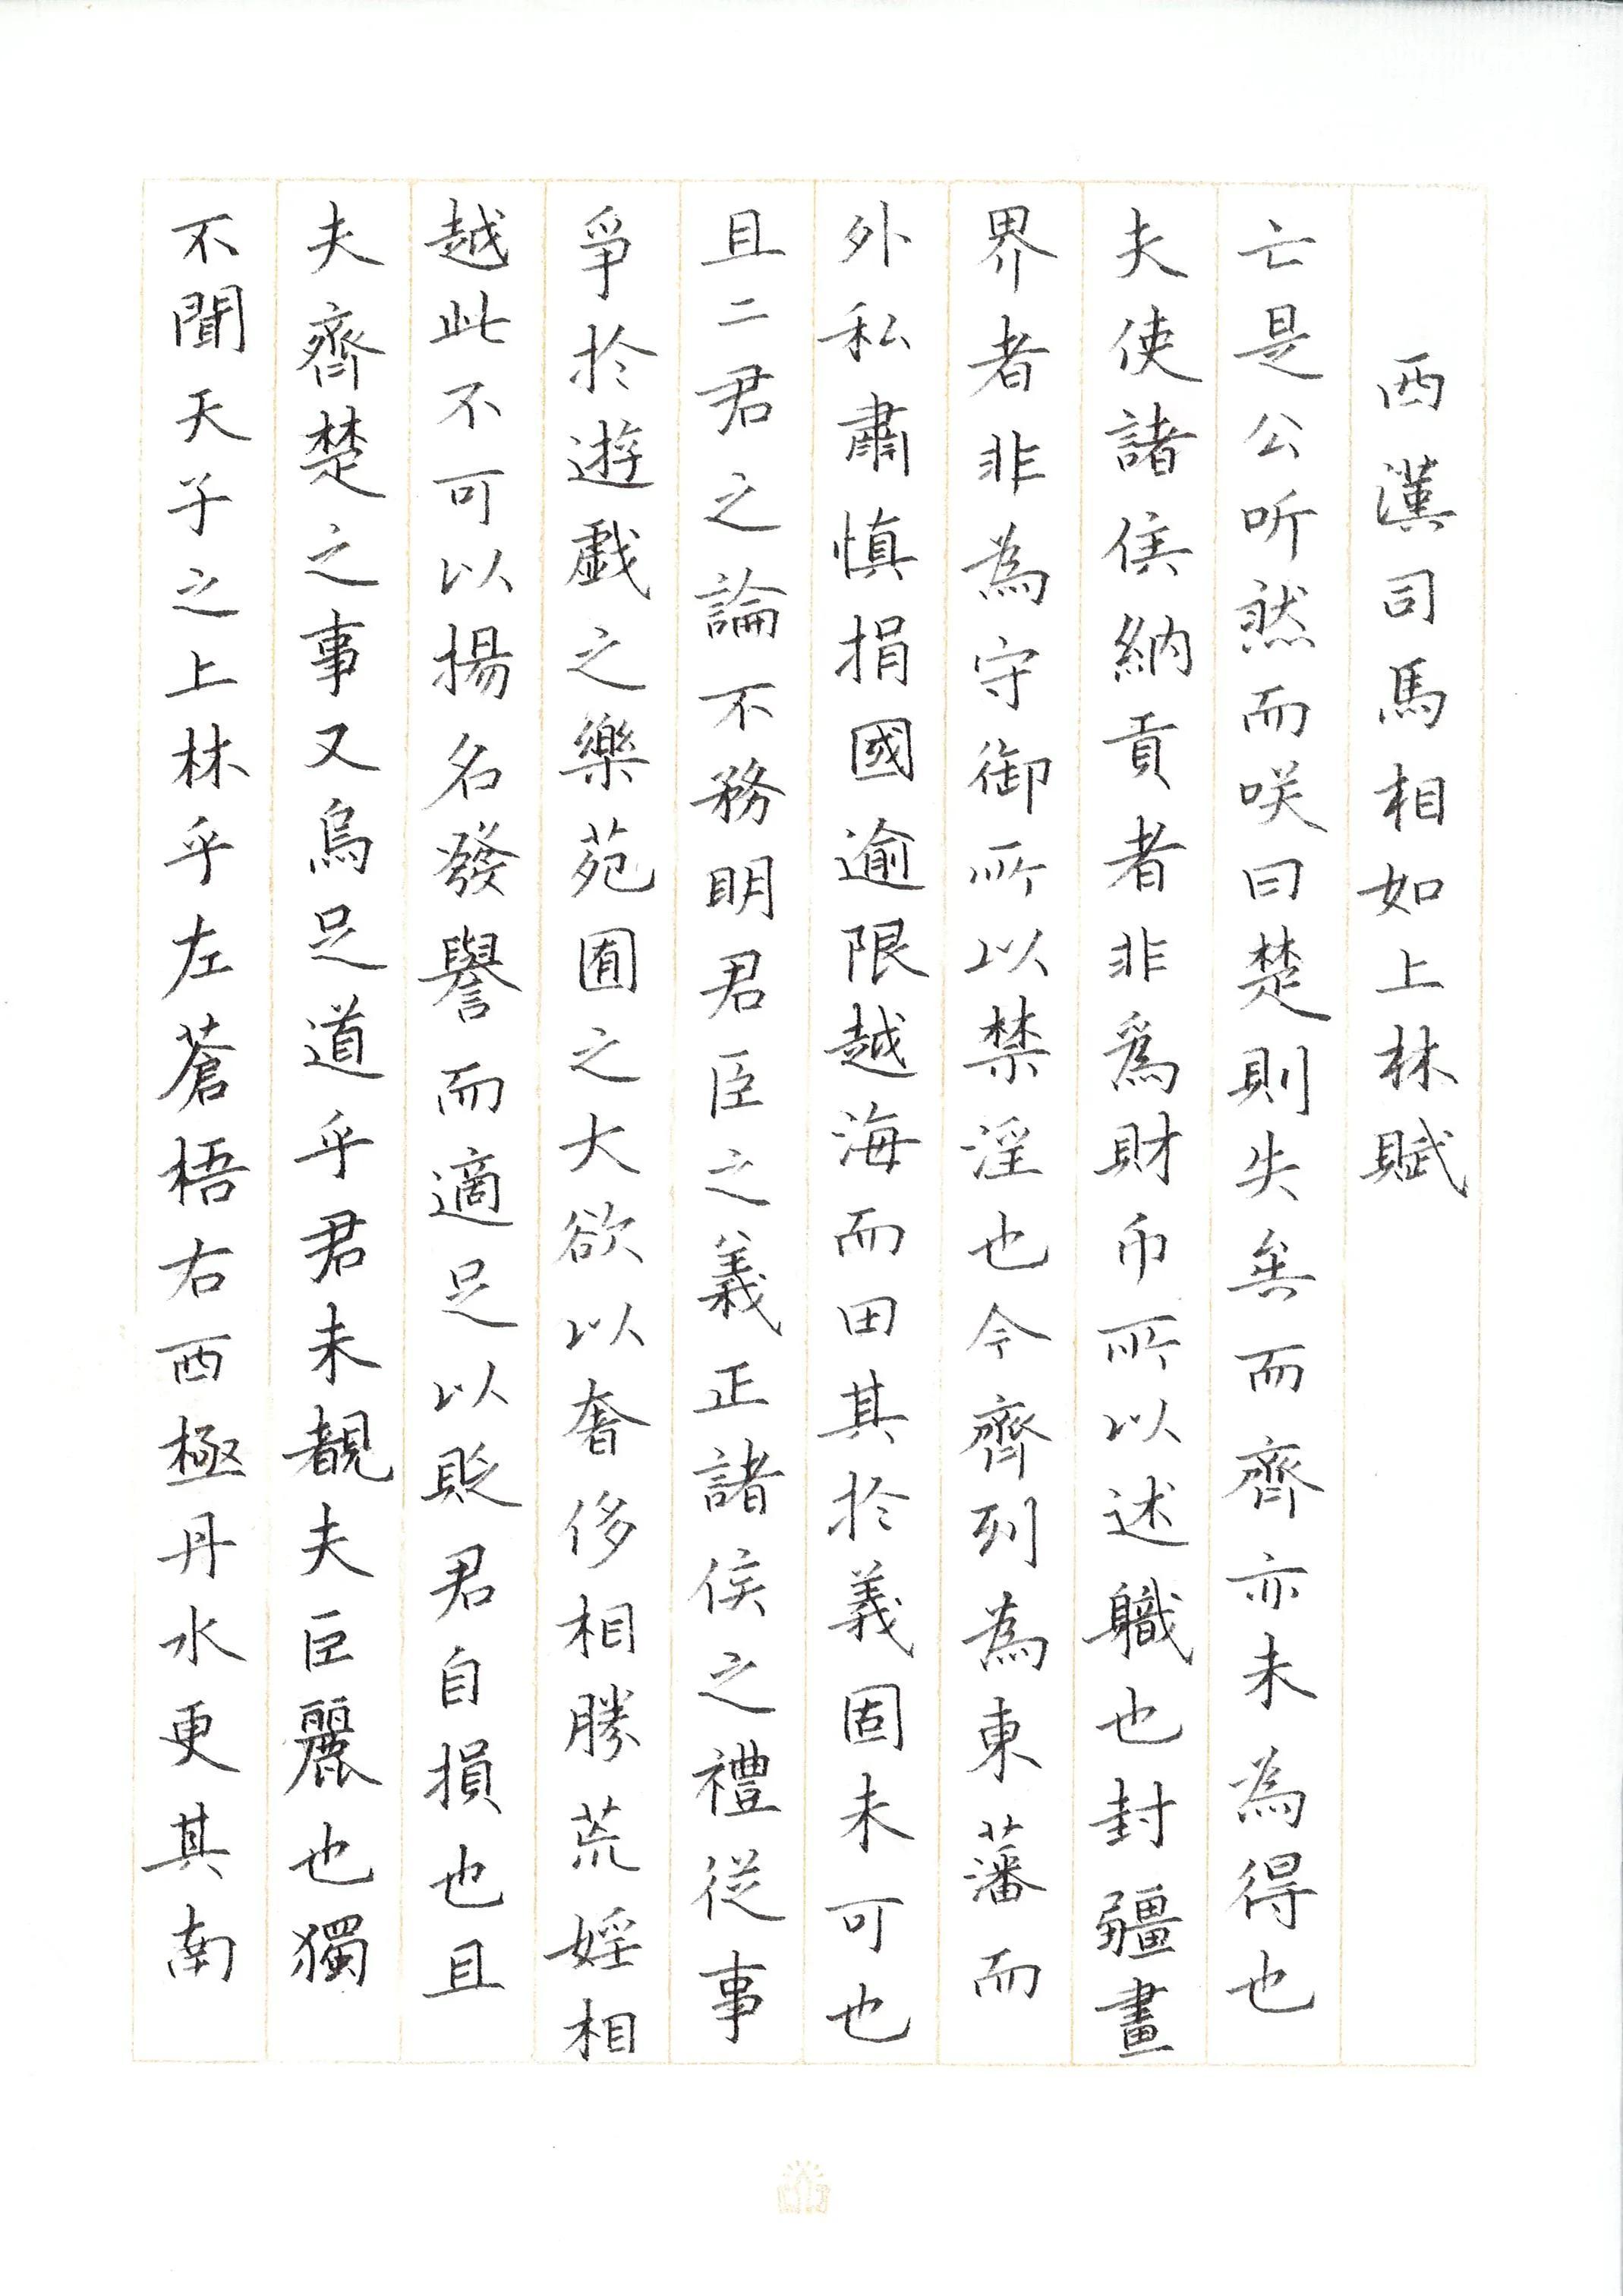 西漢司馬相如上林賦
亡是公听然而咲曰楚則失矣而齊亦未為得也
夫使諸侯納貢者非爲財帀所以述職也封疆畫
界者非為守御所以禁淫也今齊列為東藩而
外私肅慎捐國逾限越海而田其於義固未可也
且二君之論不務明君臣之義正諸侯之禮從事
爭於遊戱之樂苑囿之大欲以奢侈相勝荒婬相
越此不可以揚名發譽而適足以貶君自損也且
夫齊楚之事又烏足道乎君未覩夫臣麗也獨
不聞天子之上林乎左蒼梧右西極丹水更其南